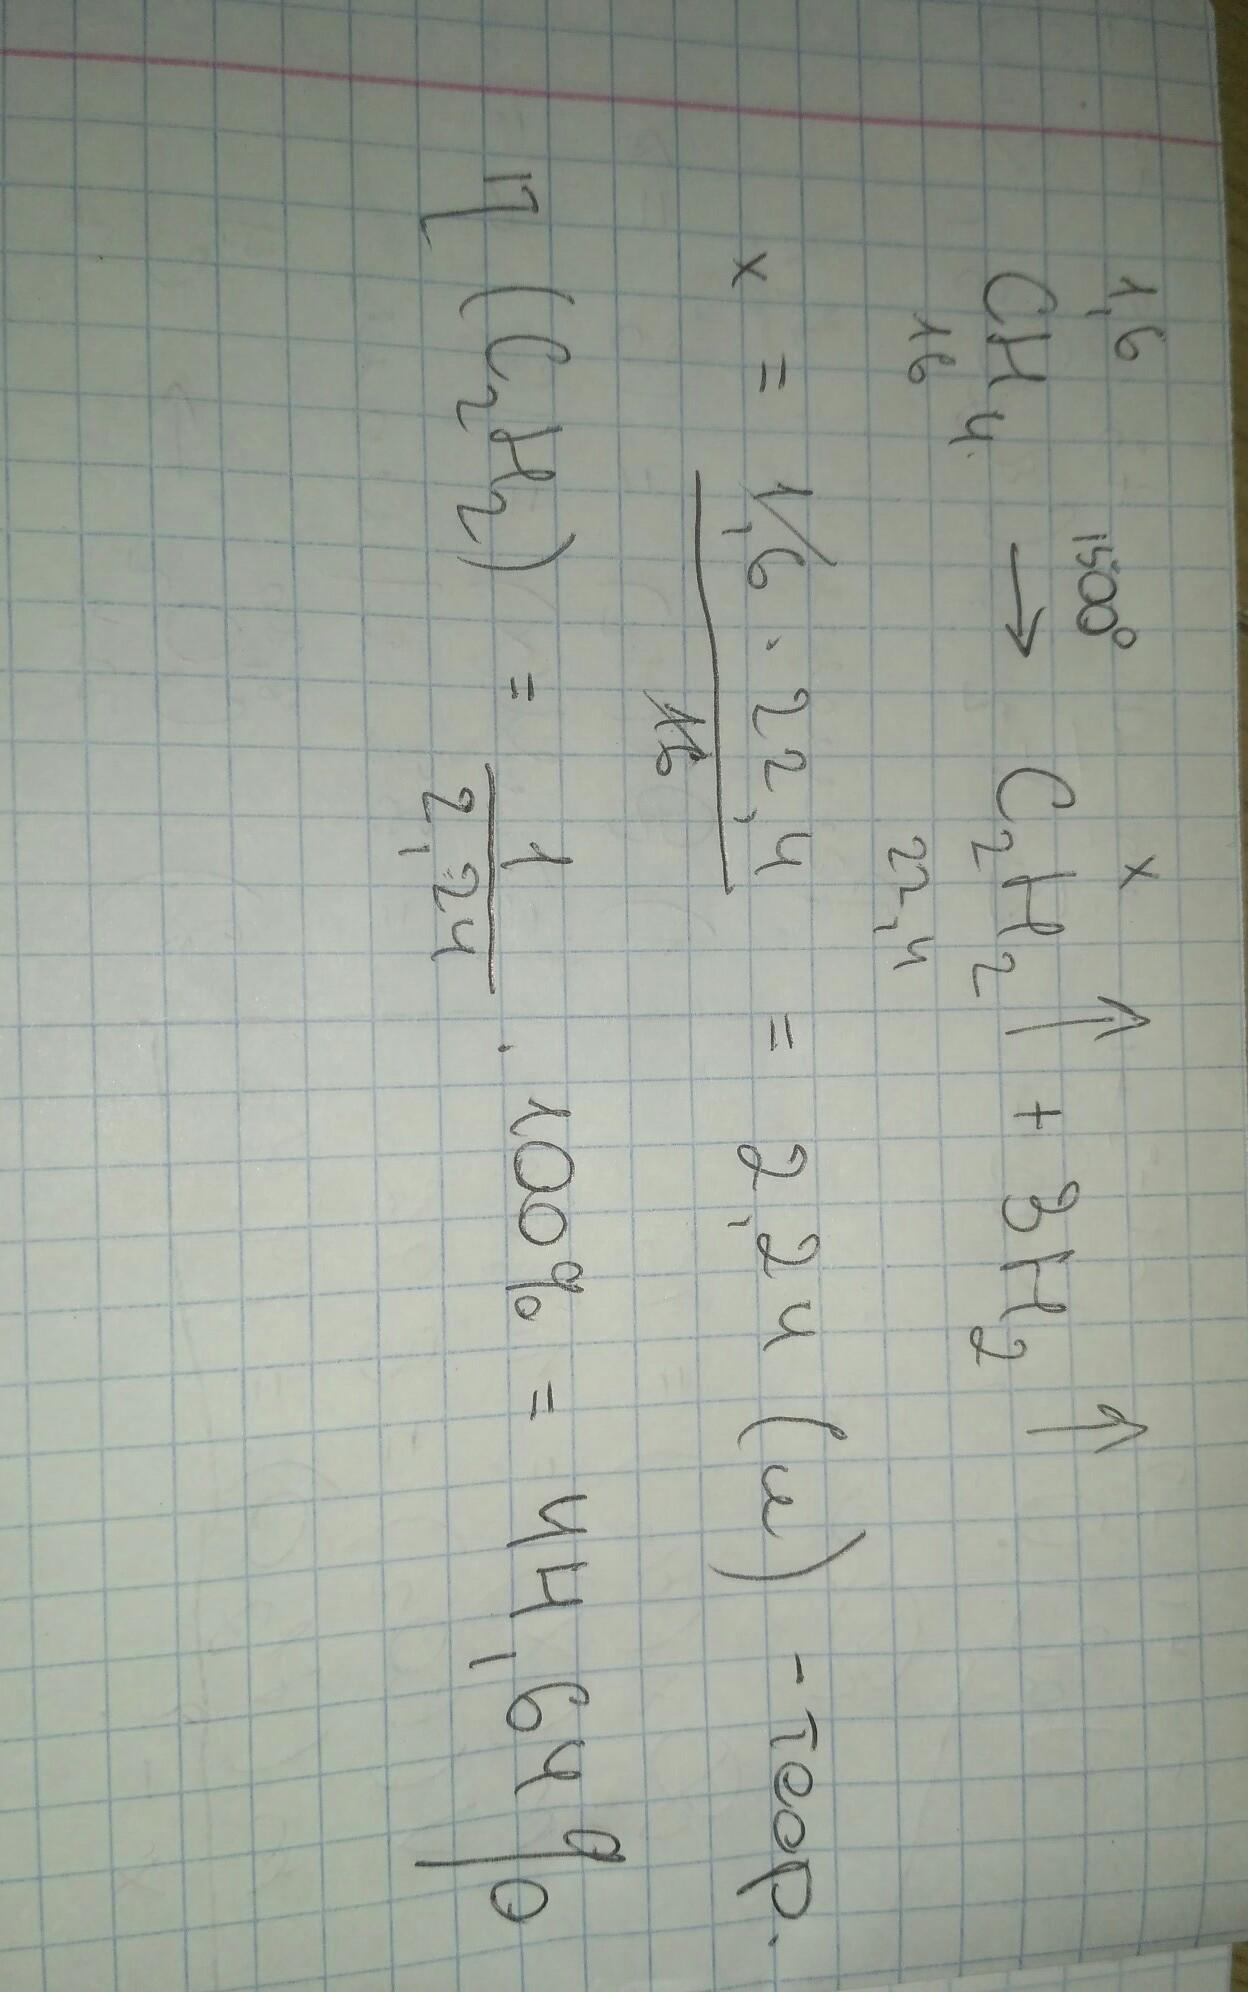 1,6 1500° x
CH₄ → C₂H₂↑ + 3H₂↑
16 22,4
x = 1,6 · 22,4 / 16 = 2,24 (л) - теор.
η (C₂H₂) = 1 / 2,24 · 100% = 44,64%